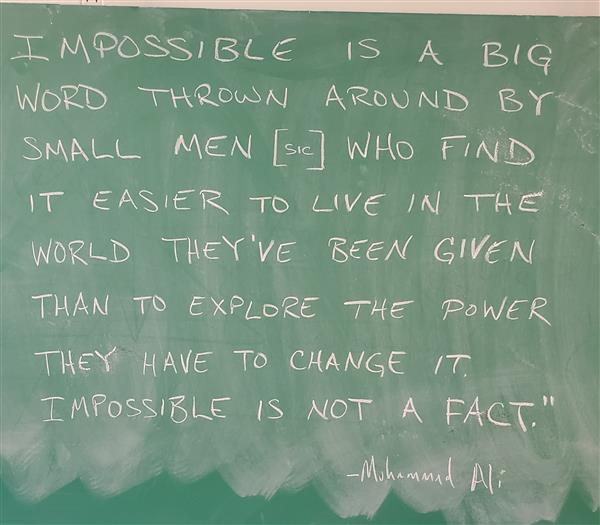 IMPOSSIBLE IS A BIG
WORD THROWN AROUND BY
SMALL MEN [SIC] WHO FIND
IT EASIER TO LIVE IN THE
WORLD THEY'VE BEEN GIVEN
THAN TO EXPLORE THE POWER
THEY HAVE TO CHANGE IT.
IMPOSSIBLE IS NOT A FACT."
-Muhammad Ali